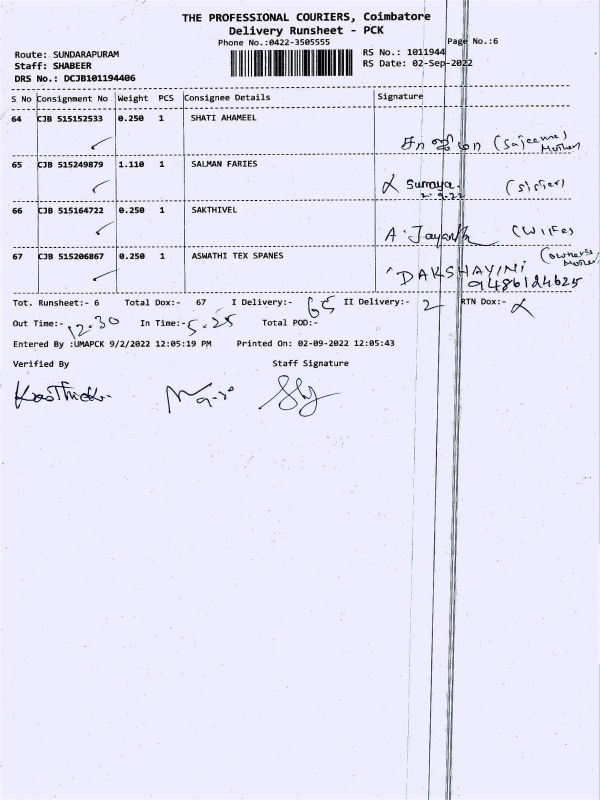 THE PROFESSIONAL COURIERS, Coimbatore
Delivery Runsheet - PCK
Phone No.:0422-3505555
Page No.:6
Route: SUNDARAPURAM
RS No.: 1011944
Staff: SHABEER
RS Date: 02-Sep-2022
DRS No.: DCJB101194406
S No Consignment No Weight PCS Consignee Details Signature
64 CJB 515152533 0.250 1 SHATI AHAMEEL
(Sajeema) Mother
65 CJB 515249879 1.110 1 SALMAN FARIES
Sumaya (Sister)
2.9.22
66 CJB 515164722 0.250 1 SAKTHIVEL
A. Jayanth (Wife)
67 CJB 515206867 0.250 1 ASWATHI TEX SPANES
(owner's Mother)
DAKSHAYINI
9486124625
Tot. Runsheet:- 6 Total Dox:- 67 I Delivery:- 65 II Delivery:- 2 RTN Dox:-
Out Time:- 12.30 In Time:- 5.25 Total POD:-
Entered By :UMAPCK 9/2/2022 12:05:19 PM Printed On: 02-09-2022 12:05:43
Verified By Staff Signature
Karthick